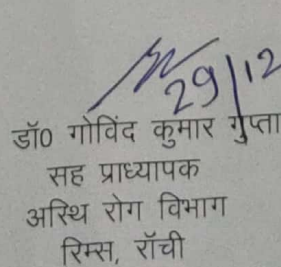 29/12
डॉ0 गोविंद कुमार गुप्ता
सह प्राध्यापक
अस्थि रोग विभाग
रिम्स, रॉची